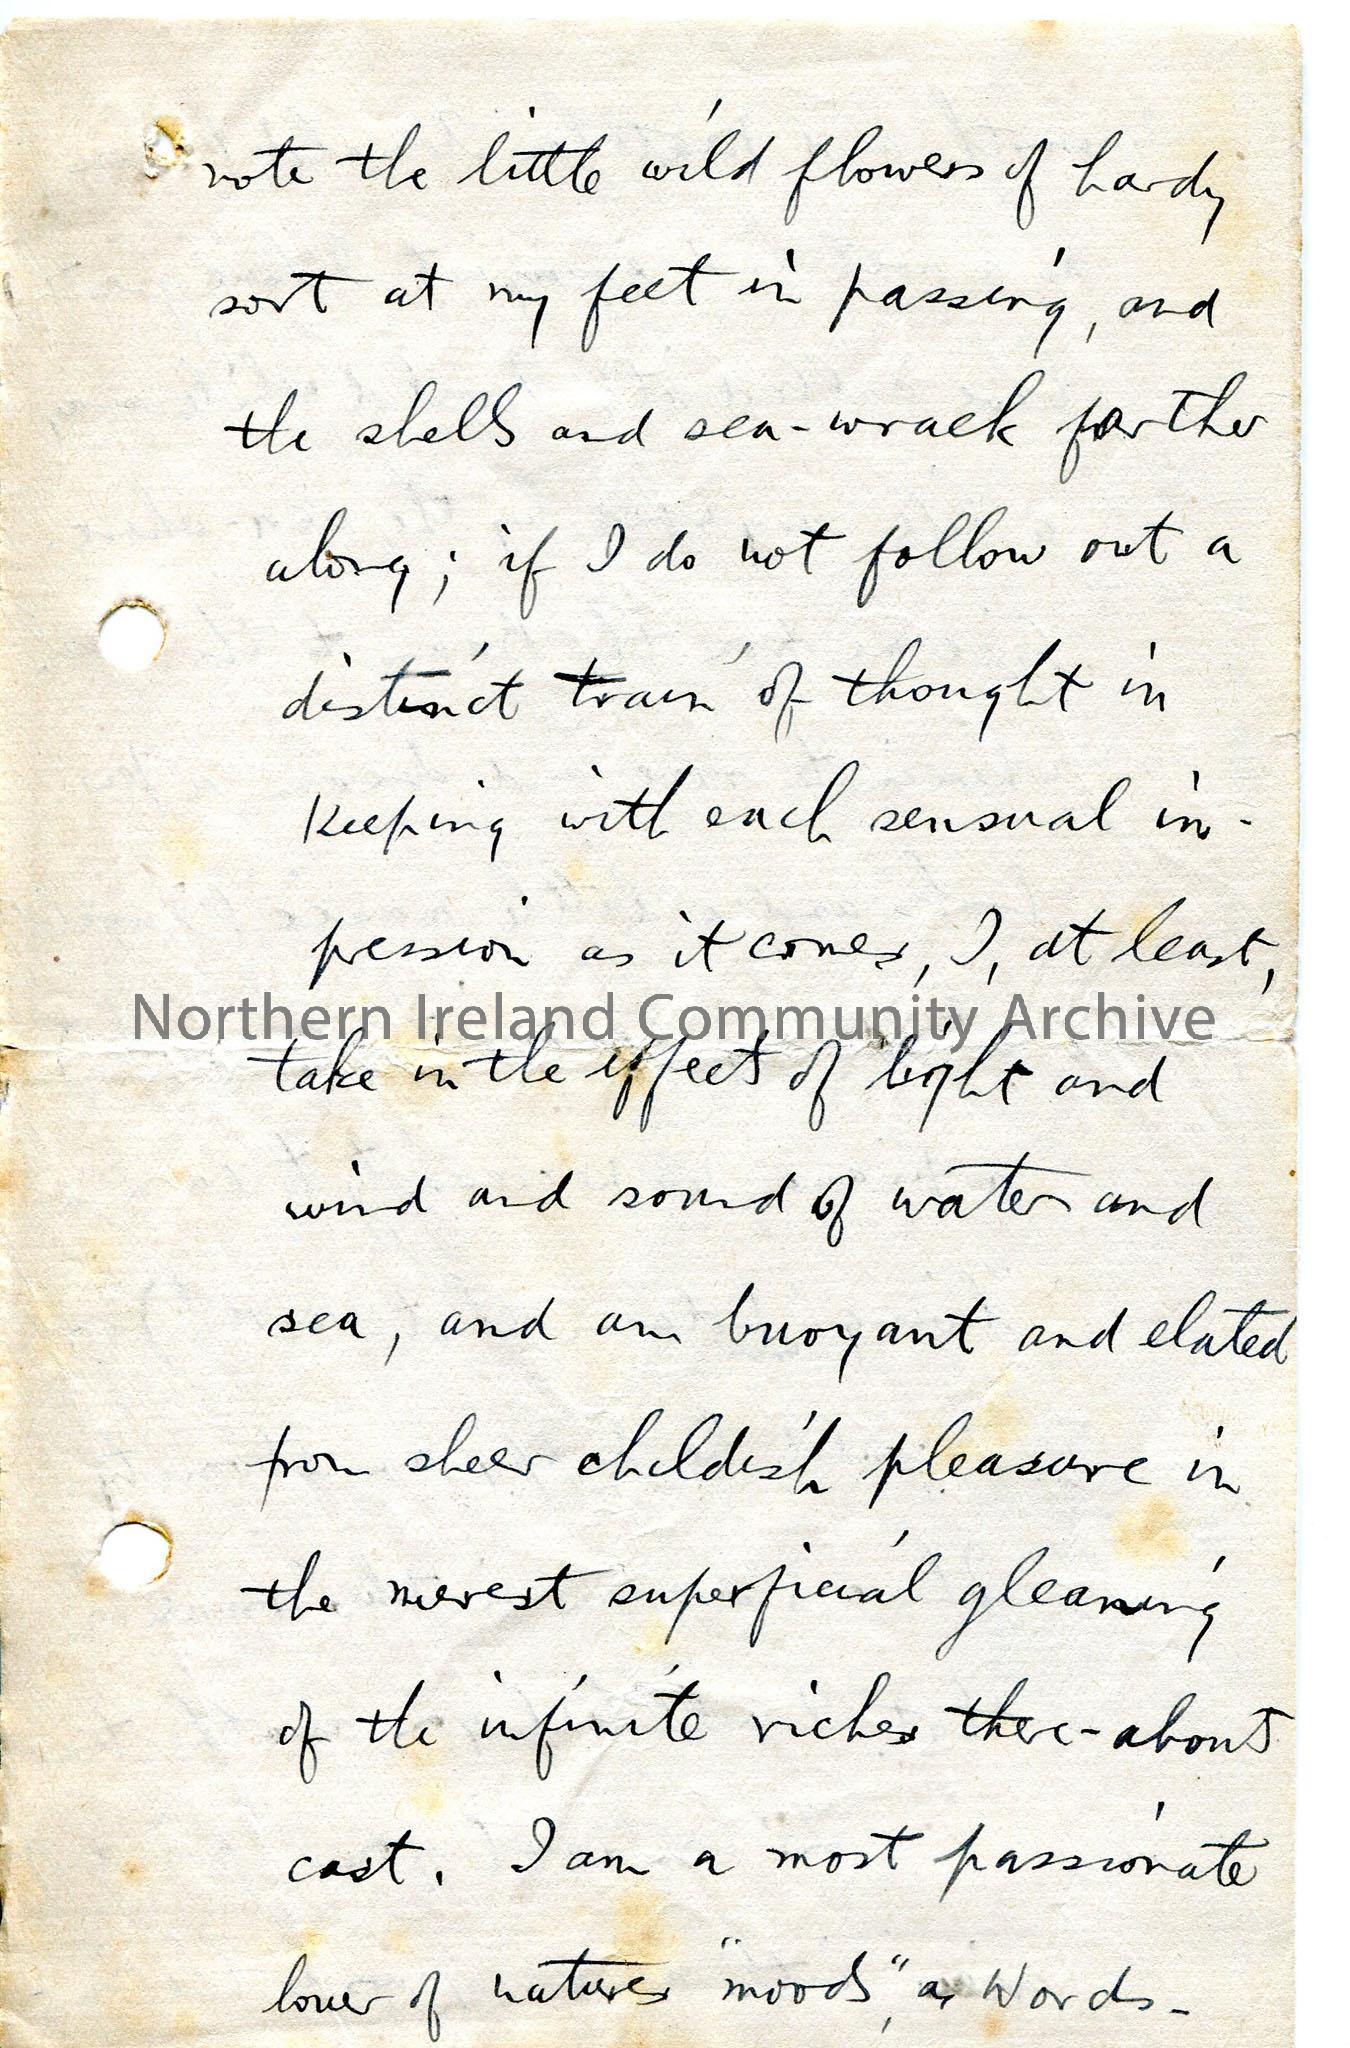 note the little wild flowers of hardy
sort at my feet in passing, and
the shells and sea-wrack farther
along; if I do not follow out a
distinct train of thought in
keeping with each sensual in-
pression as it comes, I, at least,
Northern Ireland Community Archive
take in the effects of light and
wind and sound of water and
sea, and am buoyant and elated
from sheer childish pleasure in
the merest superficial gleaning
of the infinite riches there-about
cast. I am a most passionate
lover of natures "moods," as Words-